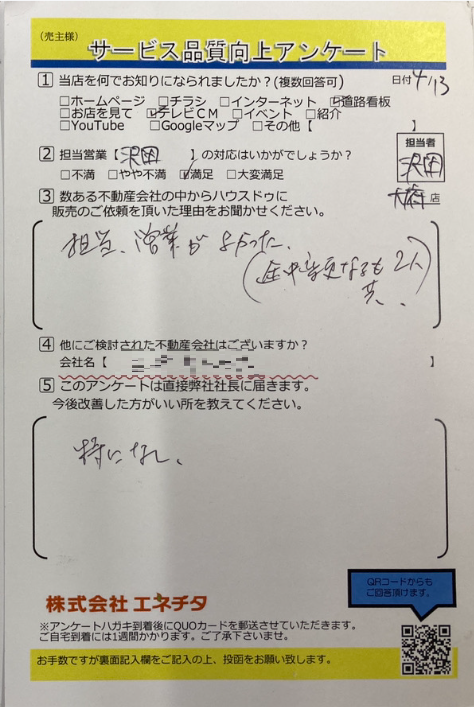 （売主様）
サービス品質向上アンケート
1 当店を何でお知りになられましたか？(複数回答可)
日付 4/13
□ホームページ □チラシ □インターネット ☑道路看板
□お店を見て ☑テレビCM □イベント □紹介
□YouTube □Googleマップ □その他【 】
担当者
沢田
大府店
2 担当営業【沢田】の対応はいかがでしょうか？
□不満 □やや不満 ☑満足 □大変満足
3 数ある不動産会社の中からハウスドゥに
販売のご依頼を頂いた理由をお聞かせください。
担当、営業がよかった、
(途中変更なるも2人
共、
4 他にご検討された不動産会社はございますか？
会社名【 】
5 このアンケートは直接弊社社長に届きます。
今後改善した方がいい所を教えてください。
特になし、
QRコードからも
ご回答頂けます。
株式会社 エネチタ
※アンケートハガキ到着後にQUOカードを郵送させていただきます。
ご自宅到着には1週間かかります。ご了承下さいませ。
お手数ですが裏面記入欄をご記入の上、投函をお願い致します。